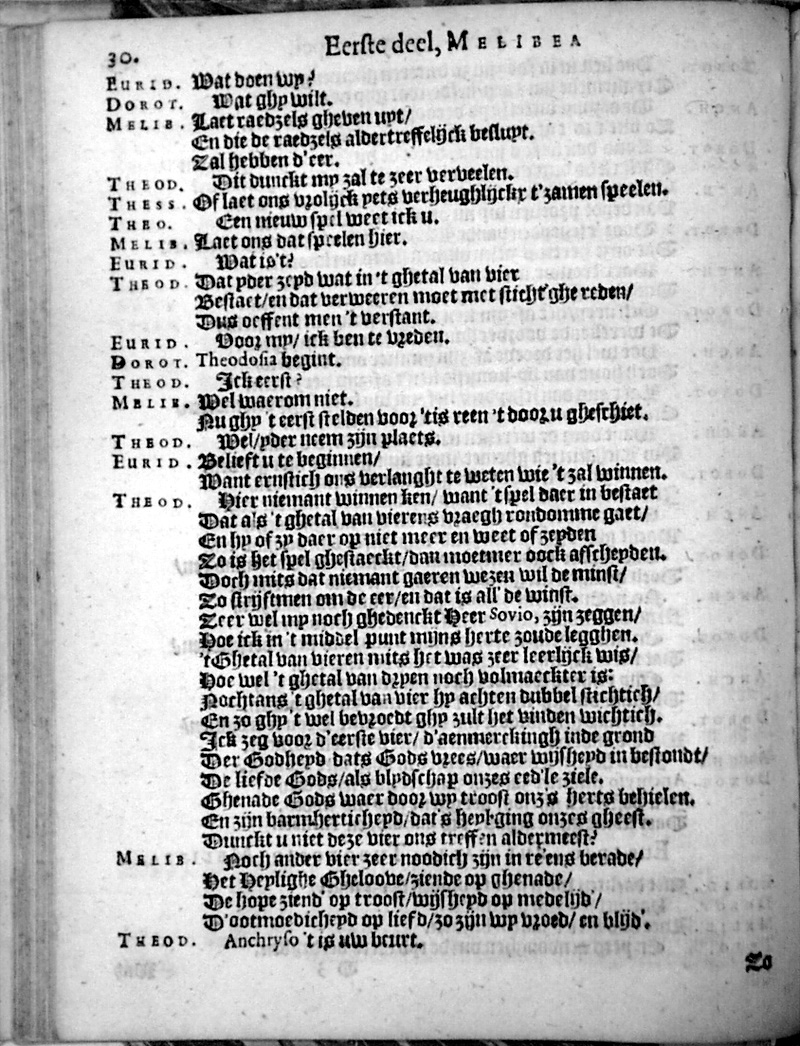 30. Eerste deel, MELIBEA
EURID. Wat doen wy?
DOROT. Wat ghy wilt.
MELIB. Laet raedzels gheven uyt/
En die de raedzels aldertreffelijck besluyt.
Zal hebben d'eer.
THEOD. Dit dunckt my zal te zeer verveelen.
THESS. Of laet ons vrolijck yets verheughlijckx t'zamen speelen.
THEO. Een nieuw spel weet ick u.
MELIB. Laet ons dat speelen hier.
EURID. Wat is't?
THEOD. Dat yder zeyd wat in 't ghetal van vier
Bestaet/en dat verweeren moet met sticht'ghe reden/
Dus oeffent men 't verstant.
EURID. Voor my/ ick ben te vreden.
DOROT. Theodosia begint.
THEOD. Ick eerst?
MELIB. Wel waerom niet.
Nu ghy 't eerst stelden voor 'tis reen 't door u gheschiet.
THEOD. Wel/yder neem zijn plaets.
EURID. Belieft u te beginnen/
Want ernstich ons verlanght te weten wie 't zal winnen.
THEOD. Hier niemant winnen ken/ want 't spel daer in bestaet
Dat als 't ghetal van vierens vraegh rondomme gaet/
En hy of zy daer op niet meer en weet of zeyden
Zo is het spel ghestaeckt/dan moetmer oock afscheyden.
Doch mits dat niemant gaeren wezen wil de minst/
Zo strijftmen om de eer/en dat is all' de winst.
Zeer wel my noch ghedenckt Heer Sovio, zijn zeggen/
Hoe ick in 't middel punt mijns herte zoude legghen.
't Ghetal van vieren mits het was zeer leerlijck wis/
Hoe wel 't ghetal van dryen noch volmaeckter is:
Nochtans 't ghetal van vier hy achten dubbel stichtich/
En zo ghy 't wel bevroedt ghy zult het vinden wichtich.
Ick zeg voor d'eerste vier/ d'aenmerckingh inde grond
Der Godheyd dats Gods vrees/waer wijsheyd in bestondt/
De liefde Gods/als blydschap onzes eed'le ziele.
Ghenade Gods waer door wy troost onz's herts behielen.
En zijn barmherticheyd/dat's heyl'ging onzes gheest.
Dunckt u niet deze vier ons treffen aldermeest?
MELIB. Noch ander vier zeer noodich zijn in re'ens berade/
Het Heylighe Gheloove/ziende op ghenade/
De hope ziend' op troost/wijsheyd op medelijd'/
D'ootmoedicheyd op liefd/zo zijn wy vroed/ en blijd'.
THEOD. Anchryso 't is uw beurt.
Zo